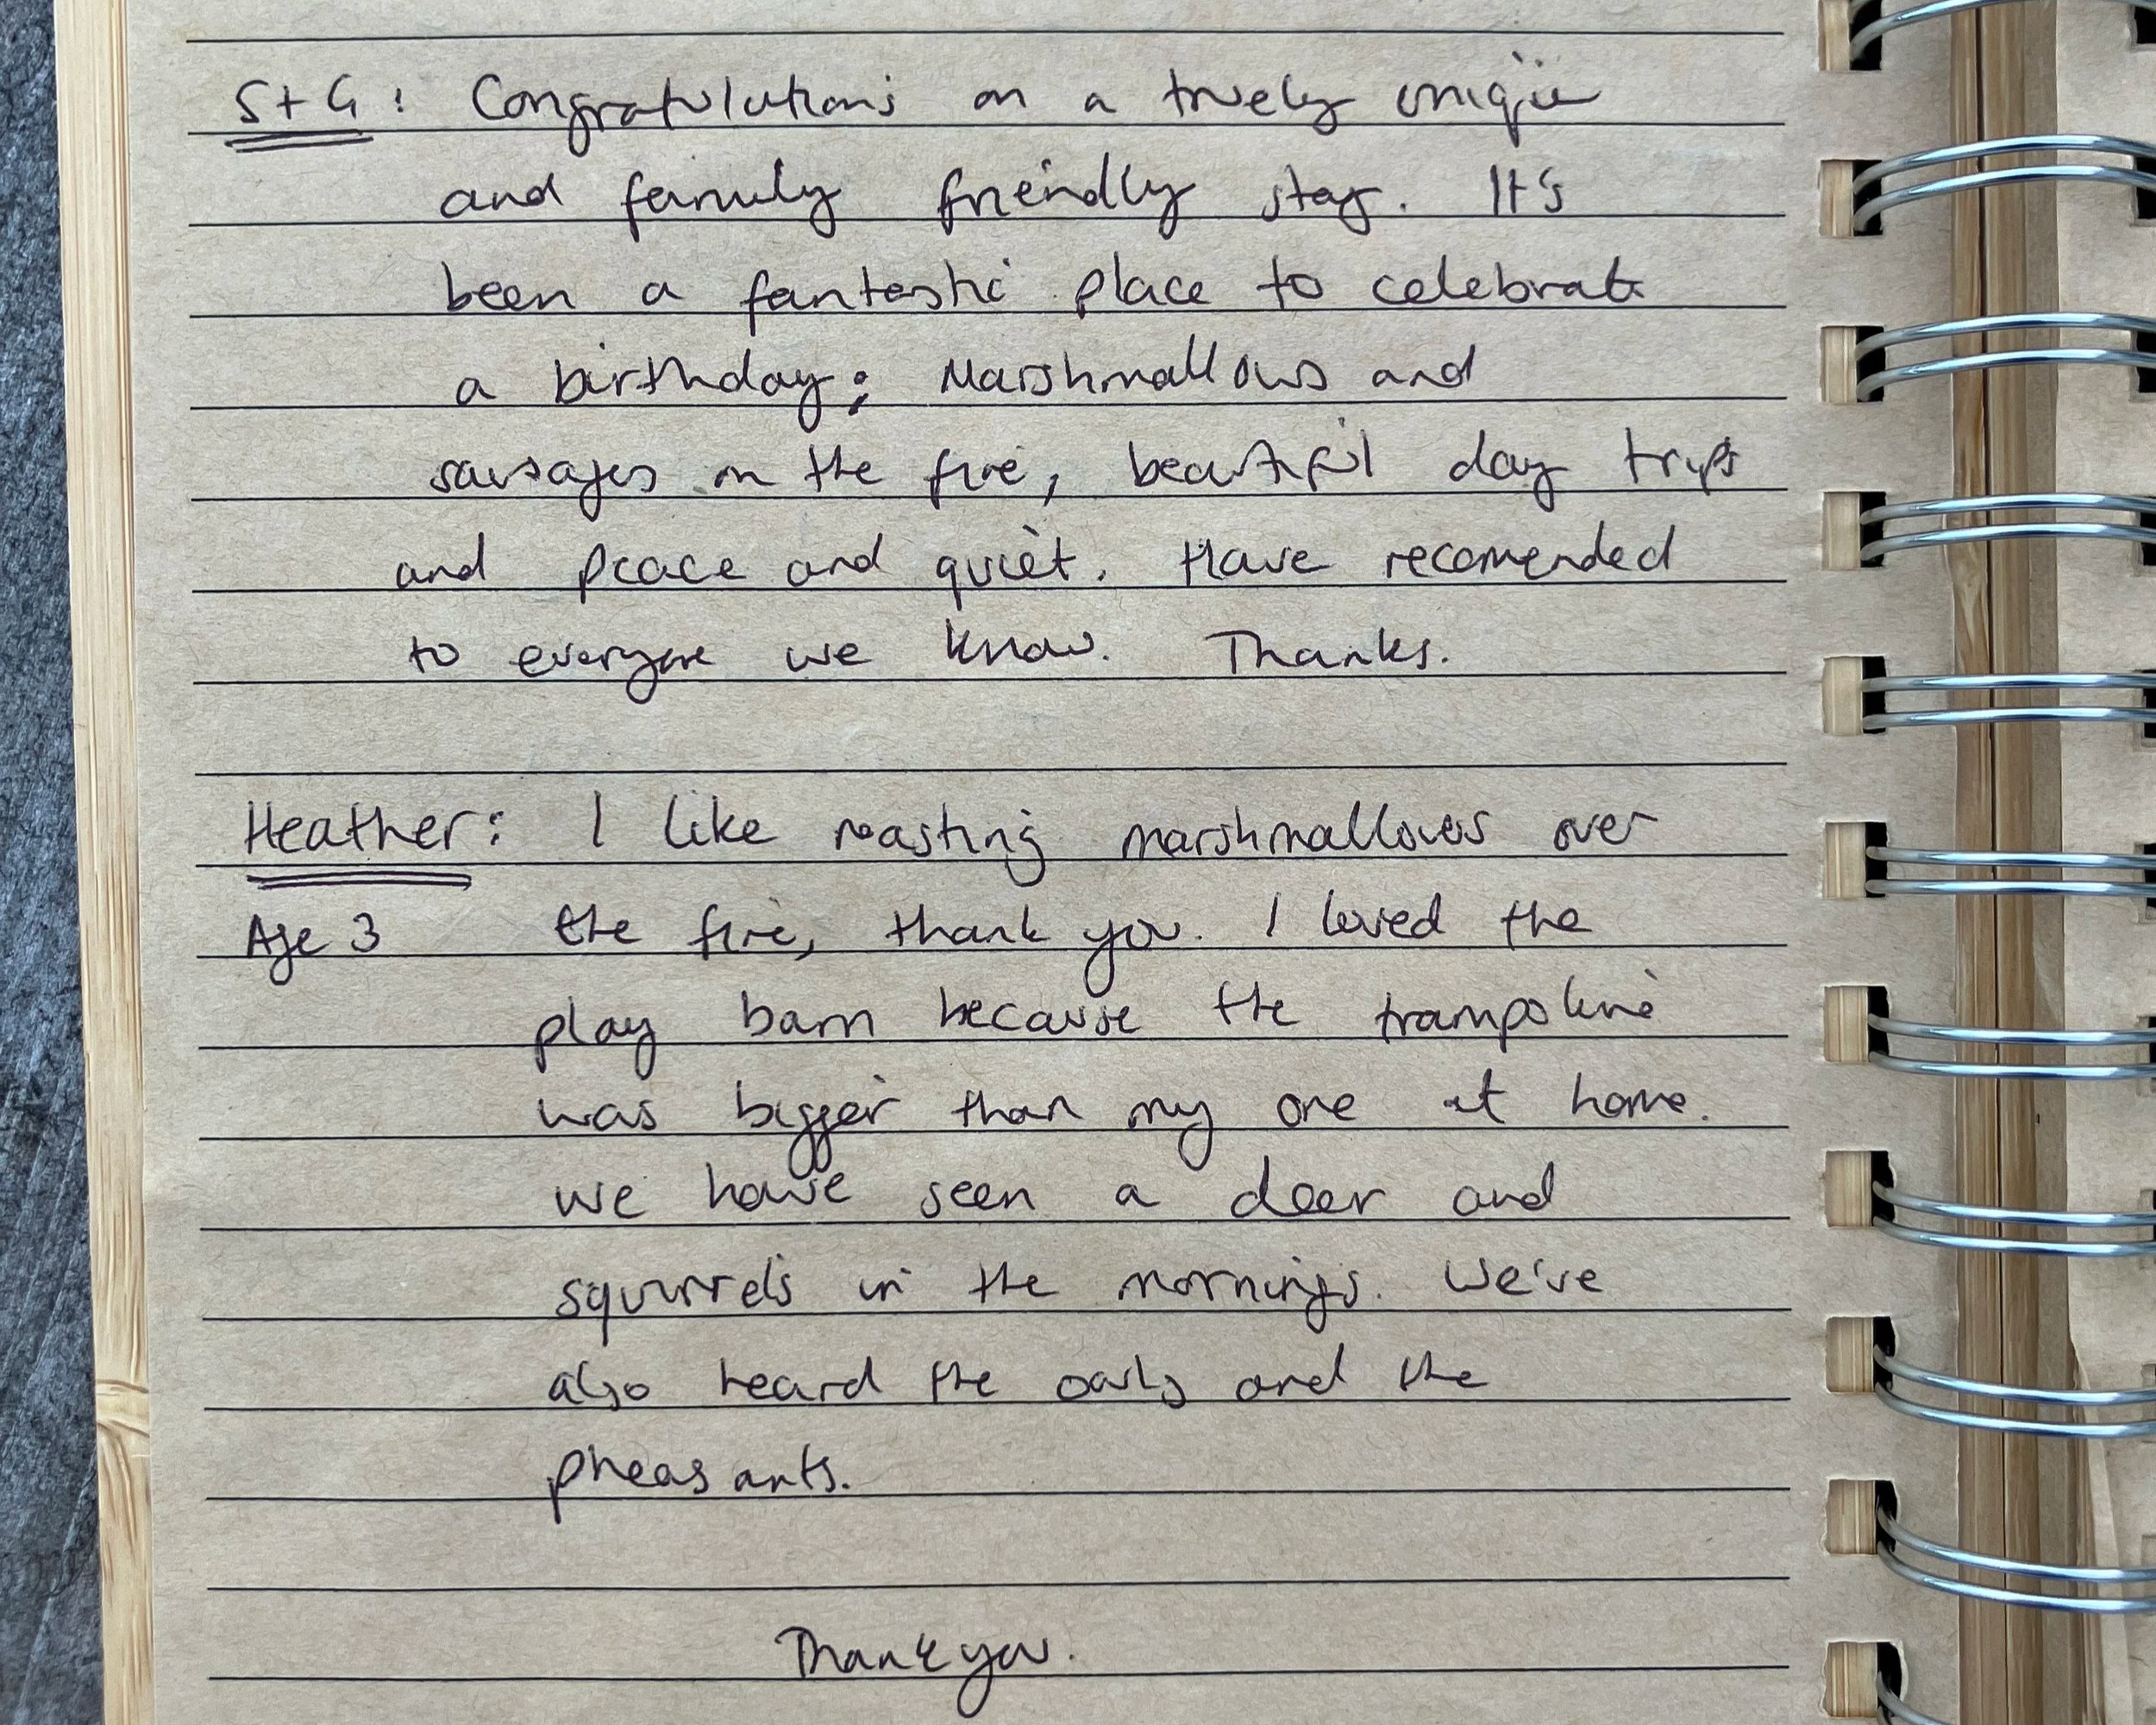 S+G: Congratulations on a truely unique
and family friendly stay. It's
been a fantastic place to celebrate
a birthday; Marshmallows and
sausages on the fire, beautiful day trips
and peace and quiet. Have recomended
to everyone we know. Thanks.
Heather: I like roasting marshmallows over
Age 3 the fire, thank you. I loved the
play barn because the trampoline
was bigger than my one at home.
We have seen a deer and
squirrels in the mornings. We've
also heard the owls and the
pheasants.
Thank you.